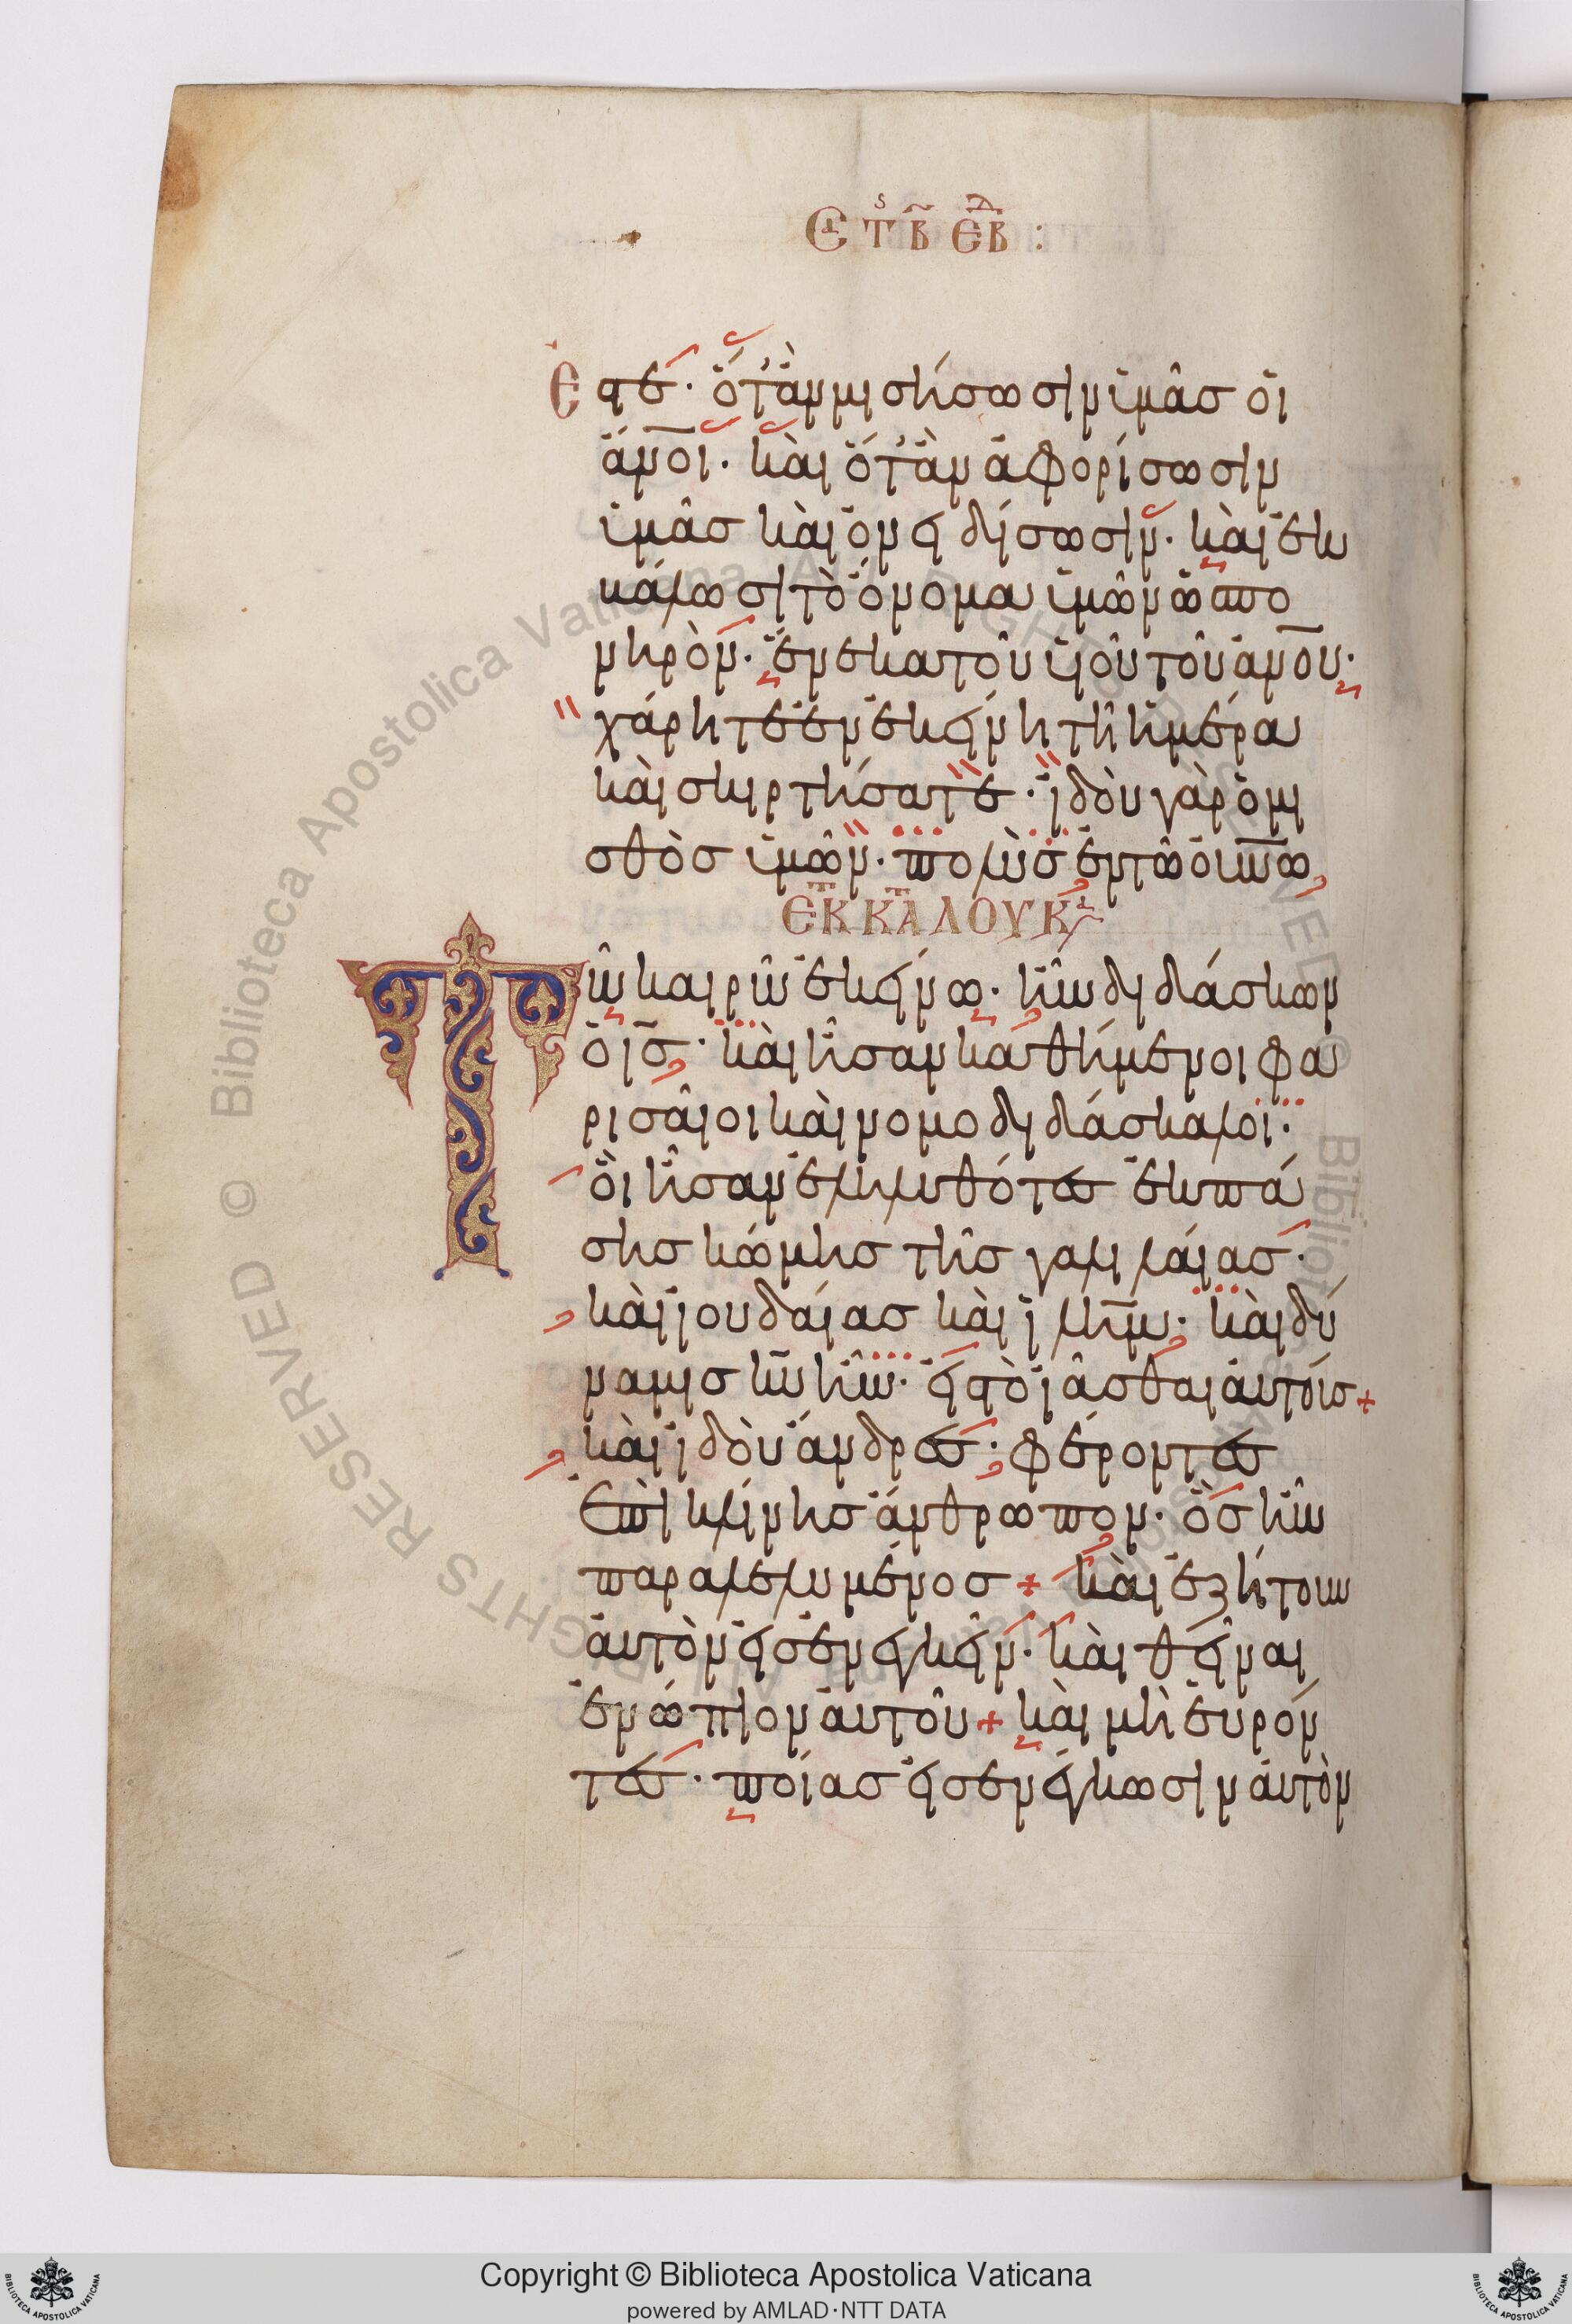 ἐστε· ὅταν μισήσωσιν ὑμᾶσ οἱ
ἄνοι· καὶ ὅταν ἀφορίσωσιν
ὑμᾶσ καὶ ὀνειδίσωσιν· καὶ ἐκ
βάλωσι τὸ ὄνομα ὑμῶν ὡσ πο
νηρὸν· ἕνεκα τοῦ υἱοῦ τοῦ ἀνου·
χάρητε ἐν ἐκείνη τῆ ἡμέρα
καὶ σκιρτήσατε· ἰδοὺ γὰρ ὁ μι
σθὸσ ὑμῶν· πολὺσ ἐν τῶ οὐνω
ΕΚ Κ ΛΟΥΚ
Τῶ καιρῶ ἐκείνω· ἦν διδάσκων
ὁ ισ· καὶ ἦσαν καθήμενοι φα
ρισαῖοι καὶ νομοδιδάσκαλοι·
οἳ ἦσαν ἐληλυθότεσ ἐκ πά
σησ κώμησ τῆσ γαλιλαίασ·
καὶ ἰουδαίασ καὶ ιλημ· καὶ δύ
ναμισ κυ ἦν· εἰσ τὸ ἰᾶσθαι αὐτούσ+
καὶ ἰδοὺ ἄνδρεσ· φέροντεσ
ἐπὶ κλίνησ ἄνθρωπον· ὃσ ἦν
παραλελυμένοσ + καὶ ἐζήτουν
αὐτὸν εἰσενεγκεῖν· καὶ θεῖναι
ἐνώπιον αὐτοῦ + καὶ μὴ εὑρόν
τεσ· ποίασ εἰσενέγκωσιν αὐτὸν
Copyright © Biblioteca Apostolica Vaticana
powered by AMLAD·NTT DATA